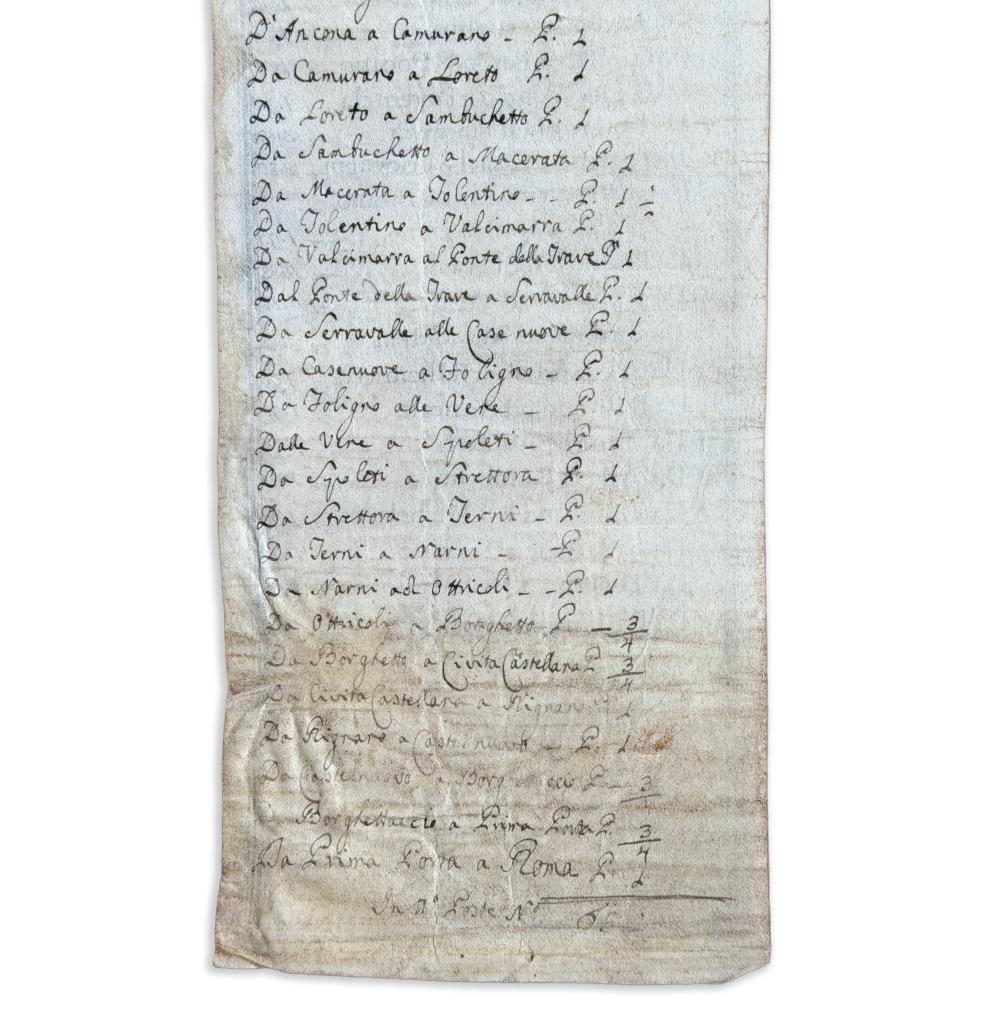 D'Ancona a Camurano - P. 1
Da Camurano a Loreto P. 1
Da Loreto a Sambuchetto P. 1
Da Sambuchetto a Macerata P. 1
Da Macerata a Tolentino - - P. 1 ½
Da Tolentino a Valcimarra P. 1
Da Valcimarra al Ponte della Trave P. 1
Dal Ponte della Trave a Serravalle P. 1
Da Serravalle alle Case nuove P. 1
Da Casenuove a Foligno - P. 1
Da Foligno alle Vene - P. 1
Dalle Vene a Spoleti - P. 1
Da Spoleti a Strettora P. 1
Da Strettora a Terni - P. 1
Da Terni a Narni - - P. 1
Da Narni ad Ottricoli - - P. 1
Da Ottricoli a Borghetto P. - 3/4
Da Borghetto a Civita Castellana P. 3/4
Da Civita Castellana a Rignano P. 1
Da Rignano a Castelnuovo - P. 1
Da Castelnuovo a P. - 3/4
Borghettaccio a Prima Porta P. 3/4
Da Prima Porta a Roma P. 1
In Poste N.º